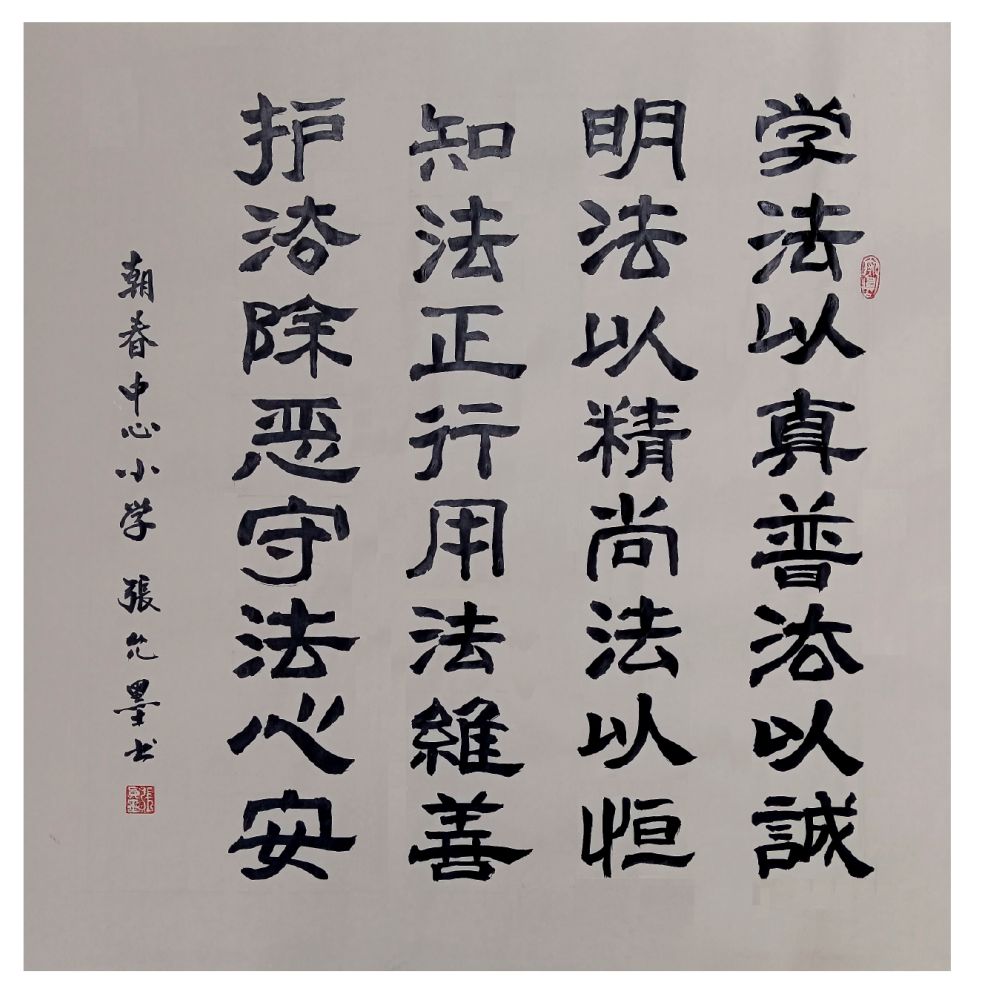 学法以真普法以誠
明法以精尚法以恒
知法正行用法維善
护法除恶守法心安
朝春中心小学 張允墨书